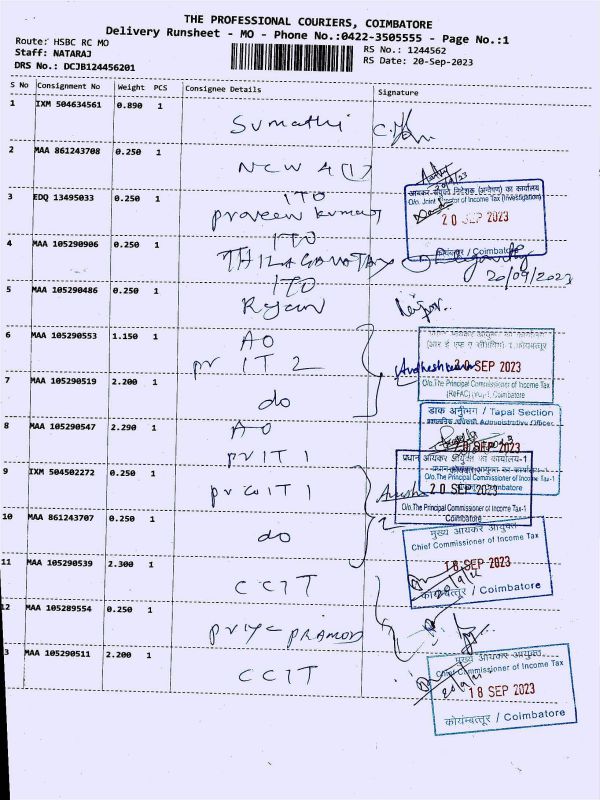 THE PROFESSIONAL COURIERS, COIMBATORE
Delivery Runsheet - MO - Phone No.:0422-3505555 - Page No.:1
Route: HSBC RC MO
RS No.: 1244562
Staff: NATARAJ
RS Date: 20-Sep-2023
DRS No.: DCJB124456201
S No Consignment No Weight PCS Consignee Details Signature
1 IXM 504634561 0.890 1
Sumathi
2 MAA 861243708 0.250 1
NCW 4(1)
3 EDQ 13495033 0.250 1
ITO
Praveen kumar
आयकर संयुक्त निदेशक (अन्वेषण) का कार्यालय
O/o. Joint Director of Income Tax (Investigation)
20 SEP 2023
कोयंबत्तूर / Coimbatore
4 MAA 105290906 0.250 1
ITO
THILAGAVATHY
20/09/2023
5 MAA 105290486 0.250 1
ITO
Rajan
6 MAA 105290553 1.150 1
AO
pr IT 2
20 SEP 2023
O/o.The Principal Commissioner of Income Tax
(ReFAC) (AU)-1, Coimbatore
7 MAA 105290519 2.200 1
do
डाक अनुभाग / Tapal Section
8 MAA 105290547 2.290 1
AO
pr IT 1
20 SEP 2023
O/o.The Principal Commissioner of Income Tax-1
Coimbatore
9 IXM 504502272 0.250 1
pr CoIT 1
प्रधान आयकर आयुक्त का कार्यालय-1
20 SEP 2023
O/o.The Principal Commissioner of Income Tax-1
Coimbatore
10 MAA 861243707 0.250 1
do
मुख्य आयकर आयुक्त
Chief Commissioner of Income Tax
18 SEP 2023
कोयम्बत्तूर / Coimbatore
11 MAA 105290539 2.300 1
CCIT
12 MAA 105289554 0.250 1
priya PRAMOD
3 MAA 105290511 2.200 1
CCIT
मुख्य आयकर आयुक्त
Chief Commissioner of Income Tax
18 SEP 2023
कोयम्बत्तूर / Coimbatore